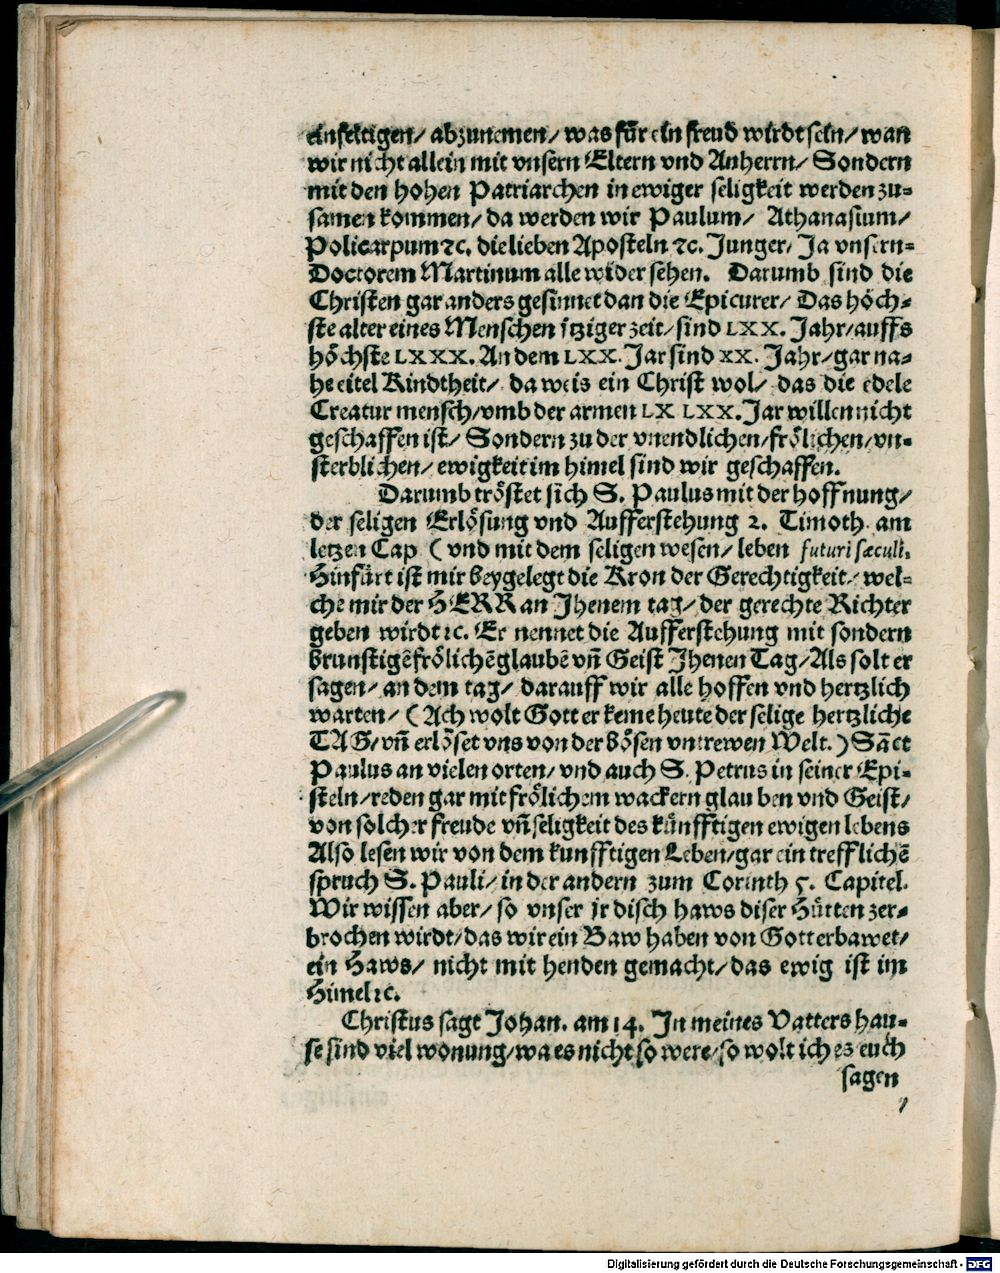 einfeltigen/ abzunemen/ was für ein freud wirdt sein/ wan
wir nicht allein mit vnsern Eltern vnd Anherrn/ Sondern
mit den hohen Patriarchen in ewiger seligkeit werden zu-
samen kommen/ da werden wir Paulum/ Athanasium/
Policarpum ꝛc. die lieben Aposteln ꝛc. Junger/ Ja vnsern-
Doctorem Martinum alle wider sehen. Darumb sind die
Christen gar anders gesinnet dan die Epicurer/ Das höch-
ste alter eines Menschen itziger zeit/ sind LXX. Jahr/ auffs
höchste LXXX. An dem LXX. Jar sind XX. Jahr/ gar na-
he eitel Kindtheit/ da weis ein Christ wol/ das die edele
Creatur mensch/ vmb der armen LX LXX. Jar willen nicht
geschaffen ist/ Sondern zu der vnendlichen/ frölichen/ vn-
sterblichen/ ewigkeit im himel sind wir geschaffen.
Darumb tröstet sich S. Paulus mit der hoffnung/
der seligen Erlösung vnd Aufferstehung 2. Timoth. am
letzen Cap. ( vnd mit dem seligen wesen/ leben futuri sæculi.
Hinfürt ist mir beygelegt die Kron der Gerechtigkeit/ wel-
che mir der HERR an Jhenem tag/ der gerechte Richter
geben wirdt ꝛc. Er nennet die Aufferstehung mit sondern
brunstigē frölichē glaubē vñ Geist Jhenen Tag/ Als solt er
sagen/ an dem tag/ darauff wir alle hoffen vnd hertzlich
warten/ ( Ach wolt Gott er keme heute der selige hertzliche
TAG/ vñ erlöset vns von der bösen vntrewen Welt. ) Sāct
Paulus an vielen orten/ vnd auch S. Petrus in seiner Epi-
steln/ reden gar mit frölichem wackern glau ben vnd Geist/
von solcher freude vñ seligkeit des künfftigen ewigen lebens
Also lesen wir von dem kunfftigen Leben/ gar ein trefflichē
spruch S. Pauli/ in der andern zum Corinth 5. Capitel.
Wir wissen aber/ so vnser jrdisch haws diser Hütten zer-
brochen wirdt/ das wir ein Baw haben von Gott erbawet/
ein Haws/ nicht mit henden gemacht/ das ewig ist im
Himel ꝛc.
Christus sagt Johan. am 14. In meines Vatters hau-
se sind viel wonung/ wa es nicht so were/ so wolt ich es euch
sagen
Digitalisierung gefördert durch die Deutsche Forschungsgemeinschaft - DFG